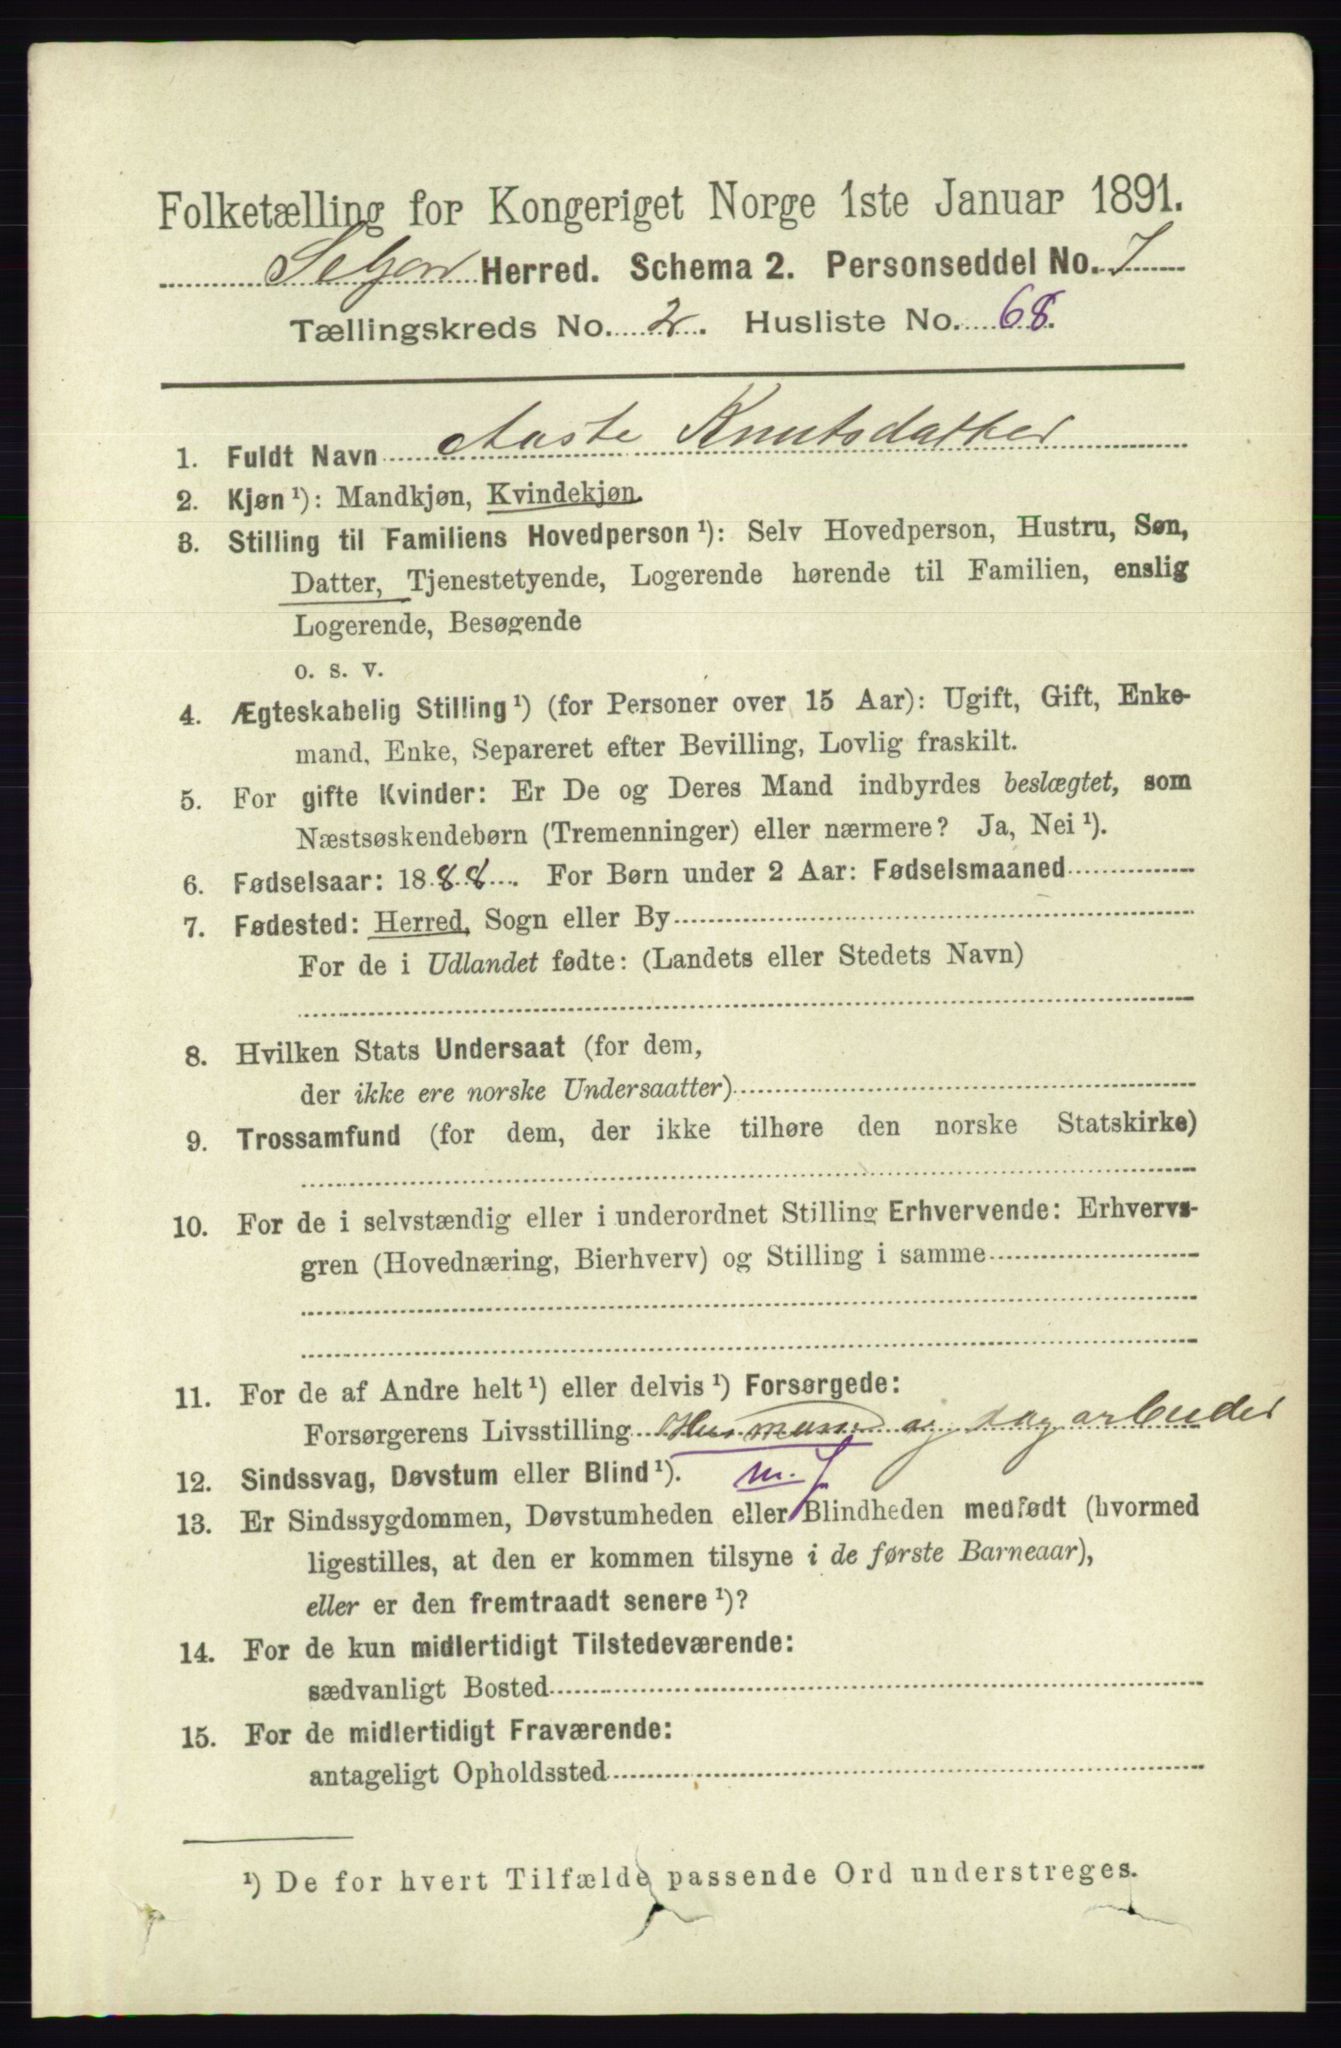 Folketælling for Kongeriget Norge 1ste Januar 1891.
Seljord Herred. Schema 2. Personseddel No. 7
Tællingskreds No. 2. Husliste No. 68.
1. Fuldt Navn Aaste Knutsdatter
2. Kjøn ¹): Mandkjøn, Kvindekjøn.
3. Stilling til Familiens Hovedperson ¹): Selv Hovedperson, Hustru, Søn,
Datter, Tjenestetyende, Logerende hørende til Familien, enslig
Logerende, Besøgende
o. s. v.
4. Ægteskabelig Stilling ¹) (for Personer over 15 Aar): Ugift, Gift, Enke-
mand, Enke, Separeret efter Bevilling, Lovlig fraskilt.
5. For gifte Kvinder: Er De og Deres Mand indbyrdes beslægtet, som
Næstsøskendebørn (Tremenninger) eller nærmere? Ja, Nei ¹).
6. Fødselsaar: 1888. For Børn under 2 Aar: Fødselsmaaned
7. Fødested: Herred, Sogn eller By
For de i Udlandet fødte: (Landets eller Stedets Navn)
8. Hvilken Stats Undersaat (for dem,
der ikke ere norske Undersaatter)
9. Trossamfund (for dem, der ikke tilhøre den norske Statskirke)
10. For de i selvstændig eller i underordnet Stilling Erhvervende: Erhvervs-
gren (Hovednæring, Bierhverv) og Stilling i samme
11. For de af Andre helt ¹) eller delvis ¹) Forsørgede:
Forsørgerens Livsstilling Husmand og dagarbeider
12. Sindssvag, Døvstum eller Blind ¹). m. J
13. Er Sindssygdommen, Døvstumheden eller Blindheden medfødt (hvormed
ligestilles, at den er kommen tilsyne i de første Barneaar),
eller er den fremtraadt senere ¹)?
14. For de kun midlertidigt Tilstedeværende:
sædvanligt Bosted
15. For de midlertidigt Fraværende:
antageligt Opholdssted
¹) De for hvert Tilfælde passende Ord understreges.